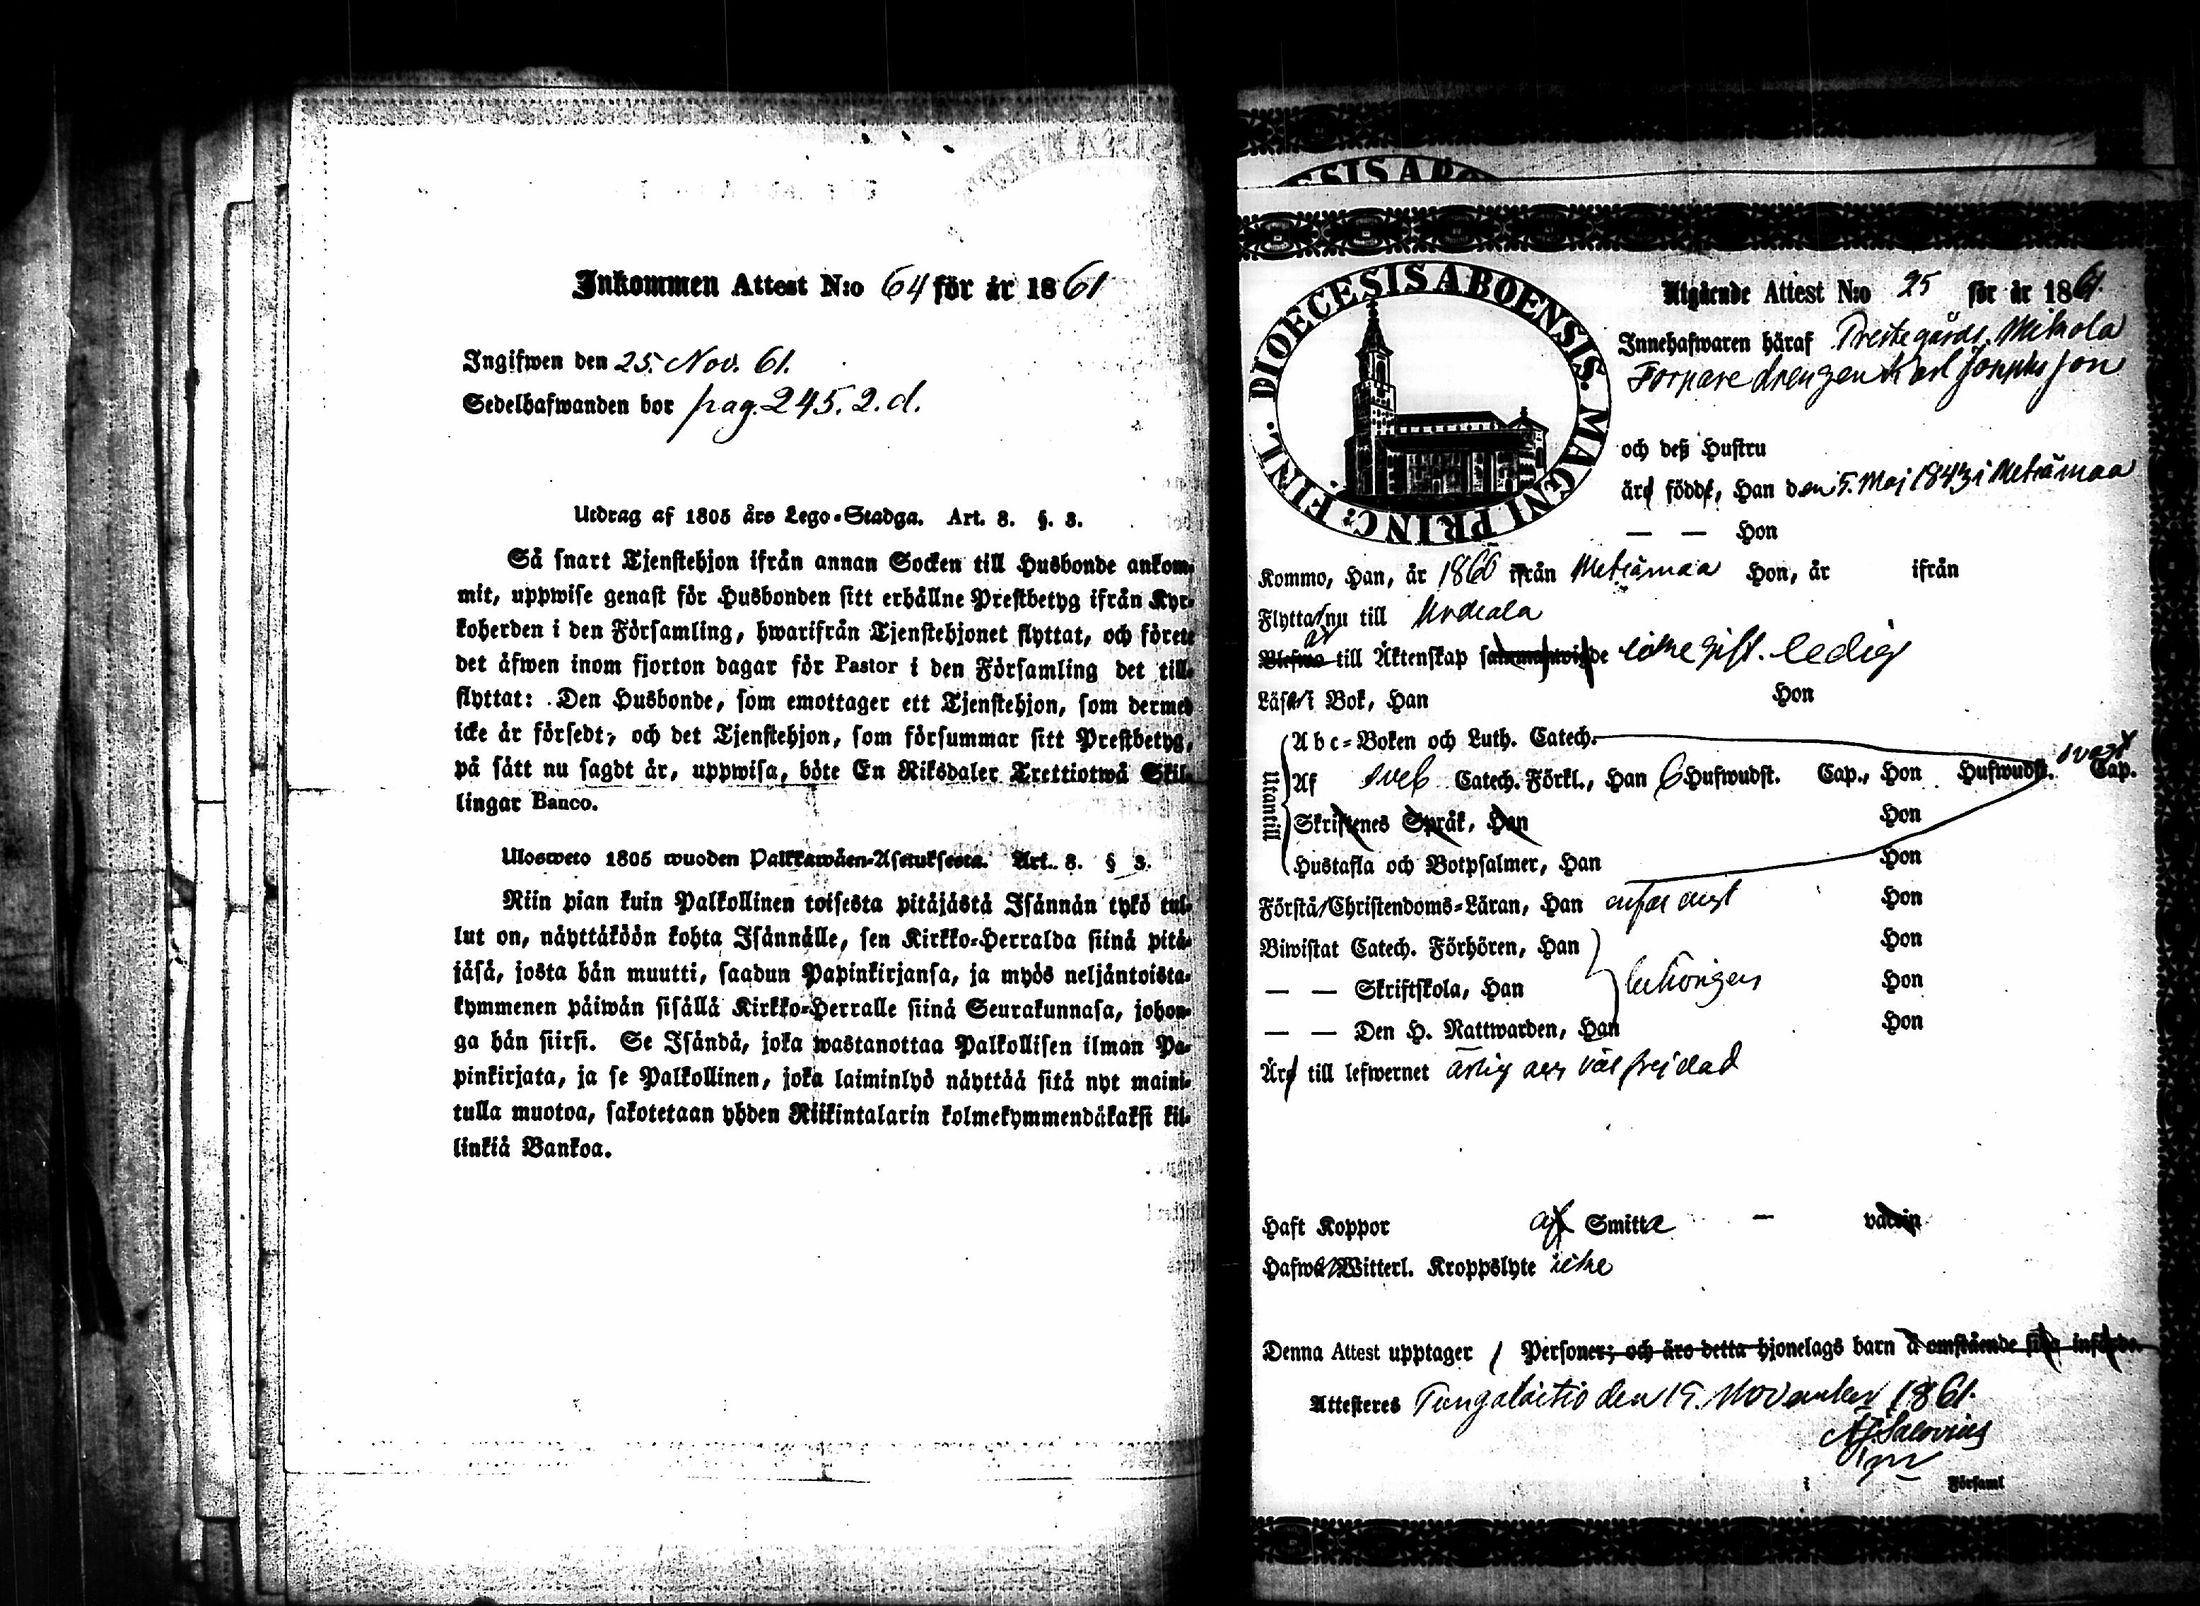 Inkommen Attest N:o 64 för år 1861
Ingifwen den 25. Nov. 61.
Sedelhafwanden bor pag. 245. 2. d.
Utdrag af 1805 års Lego-Stadga. Art. 8. §. 3.
Så snart Tjenstehjon ifrån annan Socken till Husbonde ankom-
mit, uppwise genast för Husbonden sitt erhållne Prestbetyg ifrån Kyr-
koherden i den Församling, hwarifrån Tjenstehjonet flyttat, och förete
det äfwen inom fjorton dagar för Pastor i den Församling det till-
flyttat: Den Husbonde, som emottager ett Tjenstehjon, som dermed
icke är försedt, och det Tjenstehjon, som försummar sitt Prestbetyg,
på sätt nu sagdt är, uppwisa, böte En Riksdaler Trettiotwå Skil-
lingar Banco.
Ulosweto 1805 wuoden Palkkawäen-Asetuksesta. Art. 8. § 3.
Niin pian kuin Palkollinen toisesta pitäjästä Isännän tykö tul-
lut on, näyttäköön kohta Isännälle, sen Kirkko-Herralda siinä pitä-
jäsä, josta hän muutti, saadun Papinkirjansa, ja myös neljäntoista-
kymmenen päiwän sisällä Kirkko-Herralle siinä Seurakunnasa, johon-
ga hän siirsi. Se Isändä, joka wastanottaa Palkollisen ilman Pa-
pinkirjata, ja se Palkollinen, joka laiminlyö näyttää sitä nyt maini-
tulla muotoa, sakotetaan yhden Riikintalarin kolmekymmendäkaksi kil-
linkiä Bankoa.
ESIS ABO
DIOECESIS ABOENSIS. MAGNI PRINC: FINL.
Utgående Attest N:o 25 för år 1861.
Innehafwaren häraf Prestegårds, Mikola
Torpare drengen Karl Josephsson
och deß Hustru
äro födde, Han den 5. Maj 1843 i Metsämaa
— — Hon
Kommo, Han, år 1860 ifrån Metsämaa Hon, år ifrån
Flytta nu till Urdiala
är
Blefwo till Äktenskap sammanwigde icke gift. ledig
Läsa i Bok, Han Hon
Utantill
Abc-Boken och Luth. Catech.
svagt
Af Sveb Catech. Förkl., Han 6 Hufwudst. Cap., Hon Hufwudst. Cap.
Skriftenes Språk, Han Hon
Hustafla och Botpsalmer, Han Hon
Förstå Christendoms-Läran, Han Hon
Biwistat Catech. Förhören, Han Hon
— — Skriftskola, Han behörigen Hon
— — Den H. Nattwarden, Han Hon
Äro till lefwernet ärlig och väl frejdad
Haft Koppor af Smitta — vaccin
Hafwa Witterl. Kroppslyte icke
Denna Attest upptager 1 Personer; och äro detta hjonelags barn å omstående sida införde.
Attesteres Tungalaitio den 19. November 1861.
Församl